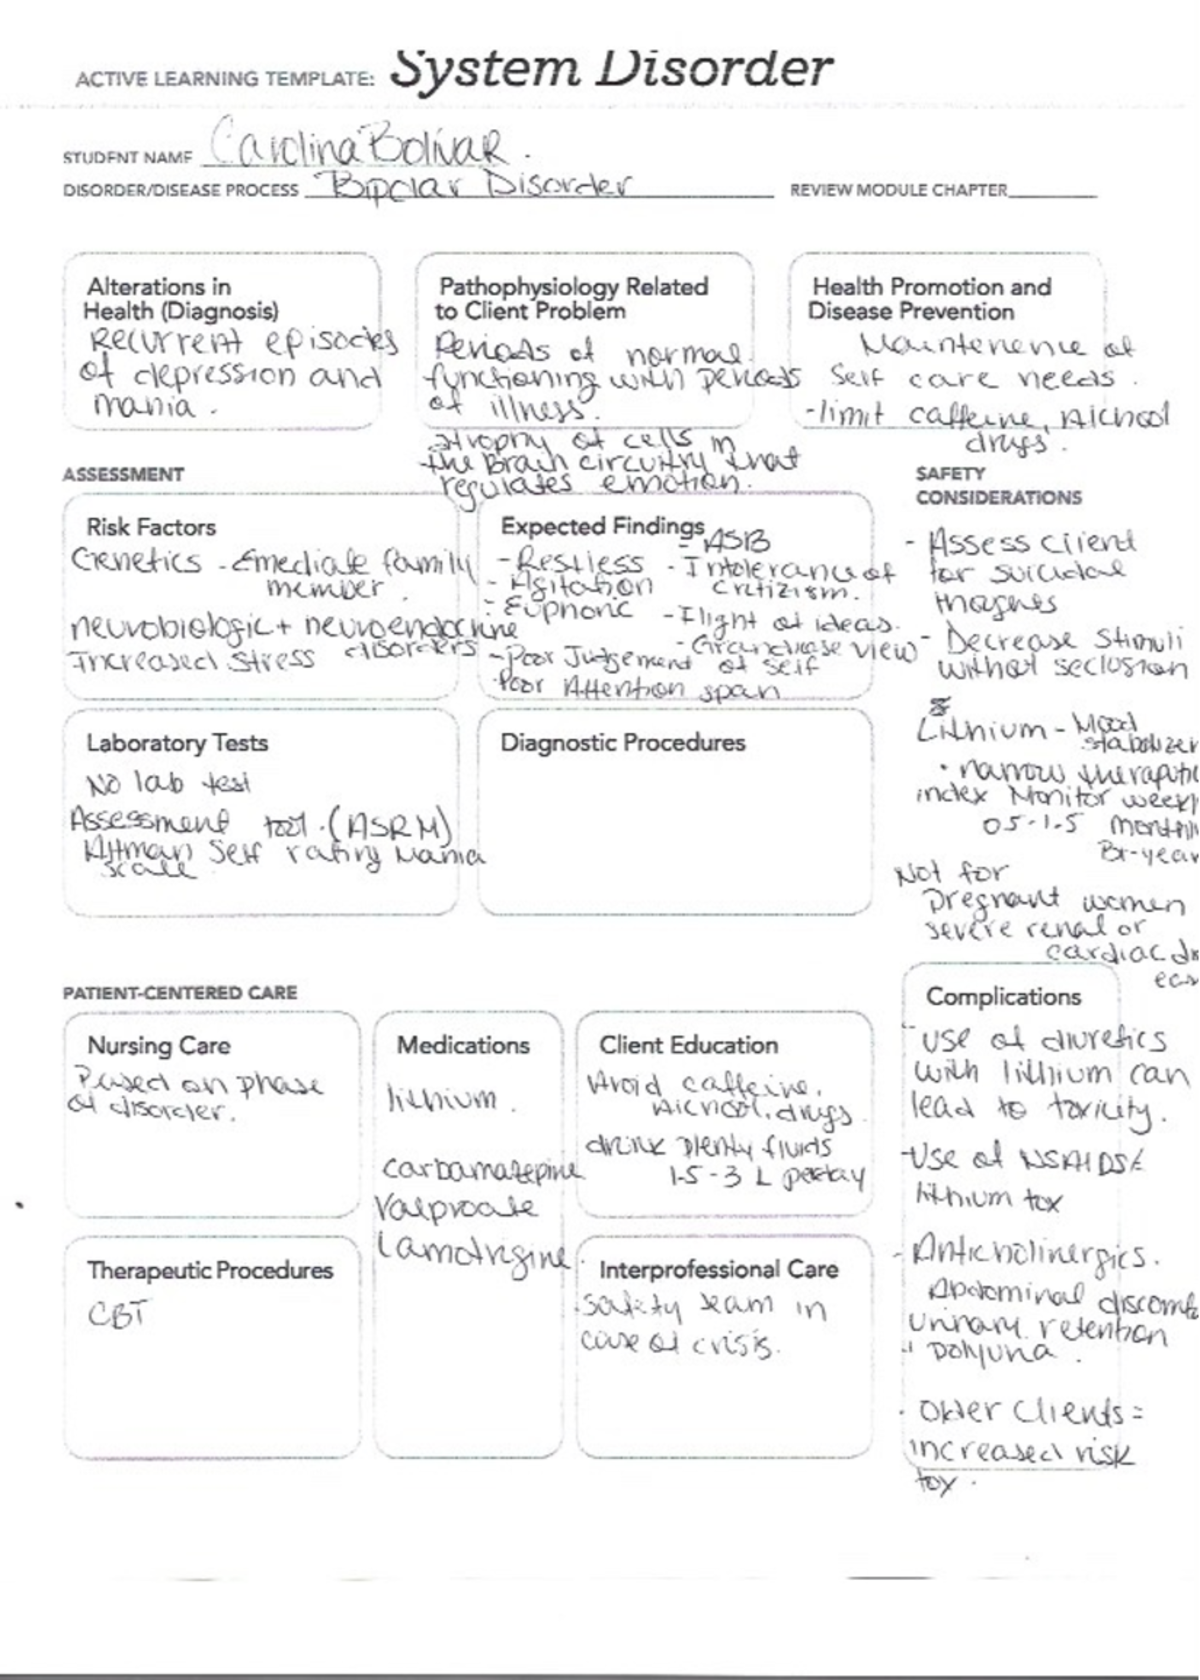 ACTIVE LEARNING TEMPLATE: System Disorder
STUDENT NAME Carolina Bolivar.
DISORDER/DISEASE PROCESS Bipolar Disorder REVIEW MODULE CHAPTER
Alterations in
Health (Diagnosis)
Recurrent episodes
of depression and
mania.
Pathophysiology Related
to Client Problem
Periods of normal
functioning with periods
of illness.
-atrophy of cells in
the Brain circuitry that
regulates emotion.
Health Promotion and
Disease Prevention
Maintenence of
Self care needs.
-limit caffeine, Alchool
drugs.
ASSESSMENT
Risk Factors
Genetics - Emediate family
member.
neurobiologic + neuroendocrine
disorders
Increased stress
Expected Findings
- Restless
- Agitation
- Euphoric
- Poor Judgement
Poor Attention span
- ASIB
- Intolerance of
critizism.
- Flight of ideas.
- Grandiose view
of self
Laboratory Tests
No lab test
Assessment tool. (ASRM)
Altman Self rating Mania
scale
Diagnostic Procedures
SAFETY
CONSIDERATIONS
- Assess client
for suicidal
thoghts
- Decrease Stimuli
without seclusion
Lithium - Mood
stabolizer
• narrow theraputic
index Monitor weekly
0.5-1.5 monthly
Bi-year
Not for
Pregnant women
severe renal or
cardiac dis
eas
PATIENT-CENTERED CARE
Nursing Care
Based on phase
of disorder.
Medications
lithium.
carbamazepine
Valproate
Lamotrigine
Client Education
Avoid caffeine,
Alchool, drugs
drink plenty fluids
1.5-3 L perday
Therapeutic Procedures
CBT
Interprofessional Care
Safety team in
case of crisis.
Complications
- use of diuretics
with lithium can
lead to toxicity.
- Use of NSAIDS
lithium tox
- Anticholinergics.
Abdominal discomf
urinary retention
Polyuria.
• Older Clients =
increased risk
tox.